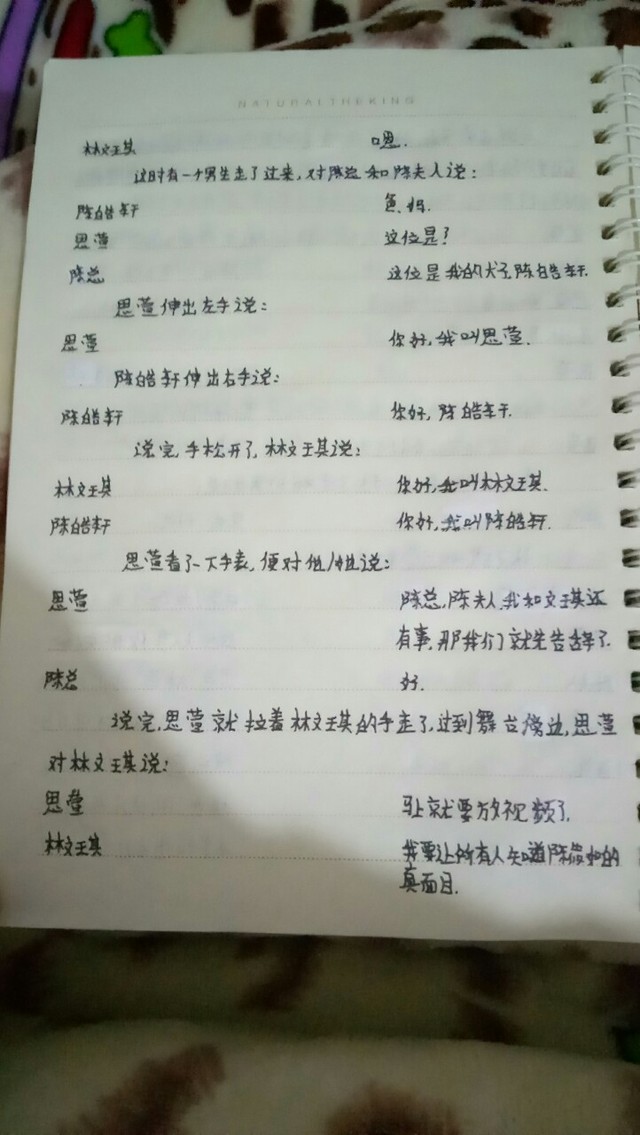 NATURALTHEKING
林文琪 嗯.
这时有一个男生走了过来,对陈总和陈夫人说:
陈皓轩 爸,妈.
思萱 这位是?
陈总 这位是我的犬子,陈皓轩.
思萱伸出左手说:
思萱 你好,我叫思萱.
陈皓轩伸出右手说:
陈皓轩 你好,陈皓轩.
说完,手松开了,林文琪说:
林文琪 你好,我叫林文琪.
陈皓轩 你好,我叫陈皓轩.
思萱看了一下手表,便对他们说:
思萱 陈总,陈夫人,我和文琪还
有事,那我们就先告辞了.
陈总 好.
说完,思萱就拉着林文琪的手走了,过到舞台傍边,思萱
对林文琪说:
思萱 马上就要放视频了.
林文琪 我要让所有人知道陈的
真面目.